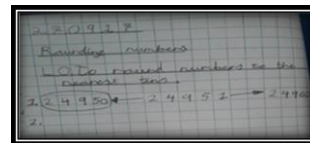 22.09.17
Rounding numbers
L.O. To round numbers to the
nearest tens.
1. 24950 ← 24951 → 24960
2.